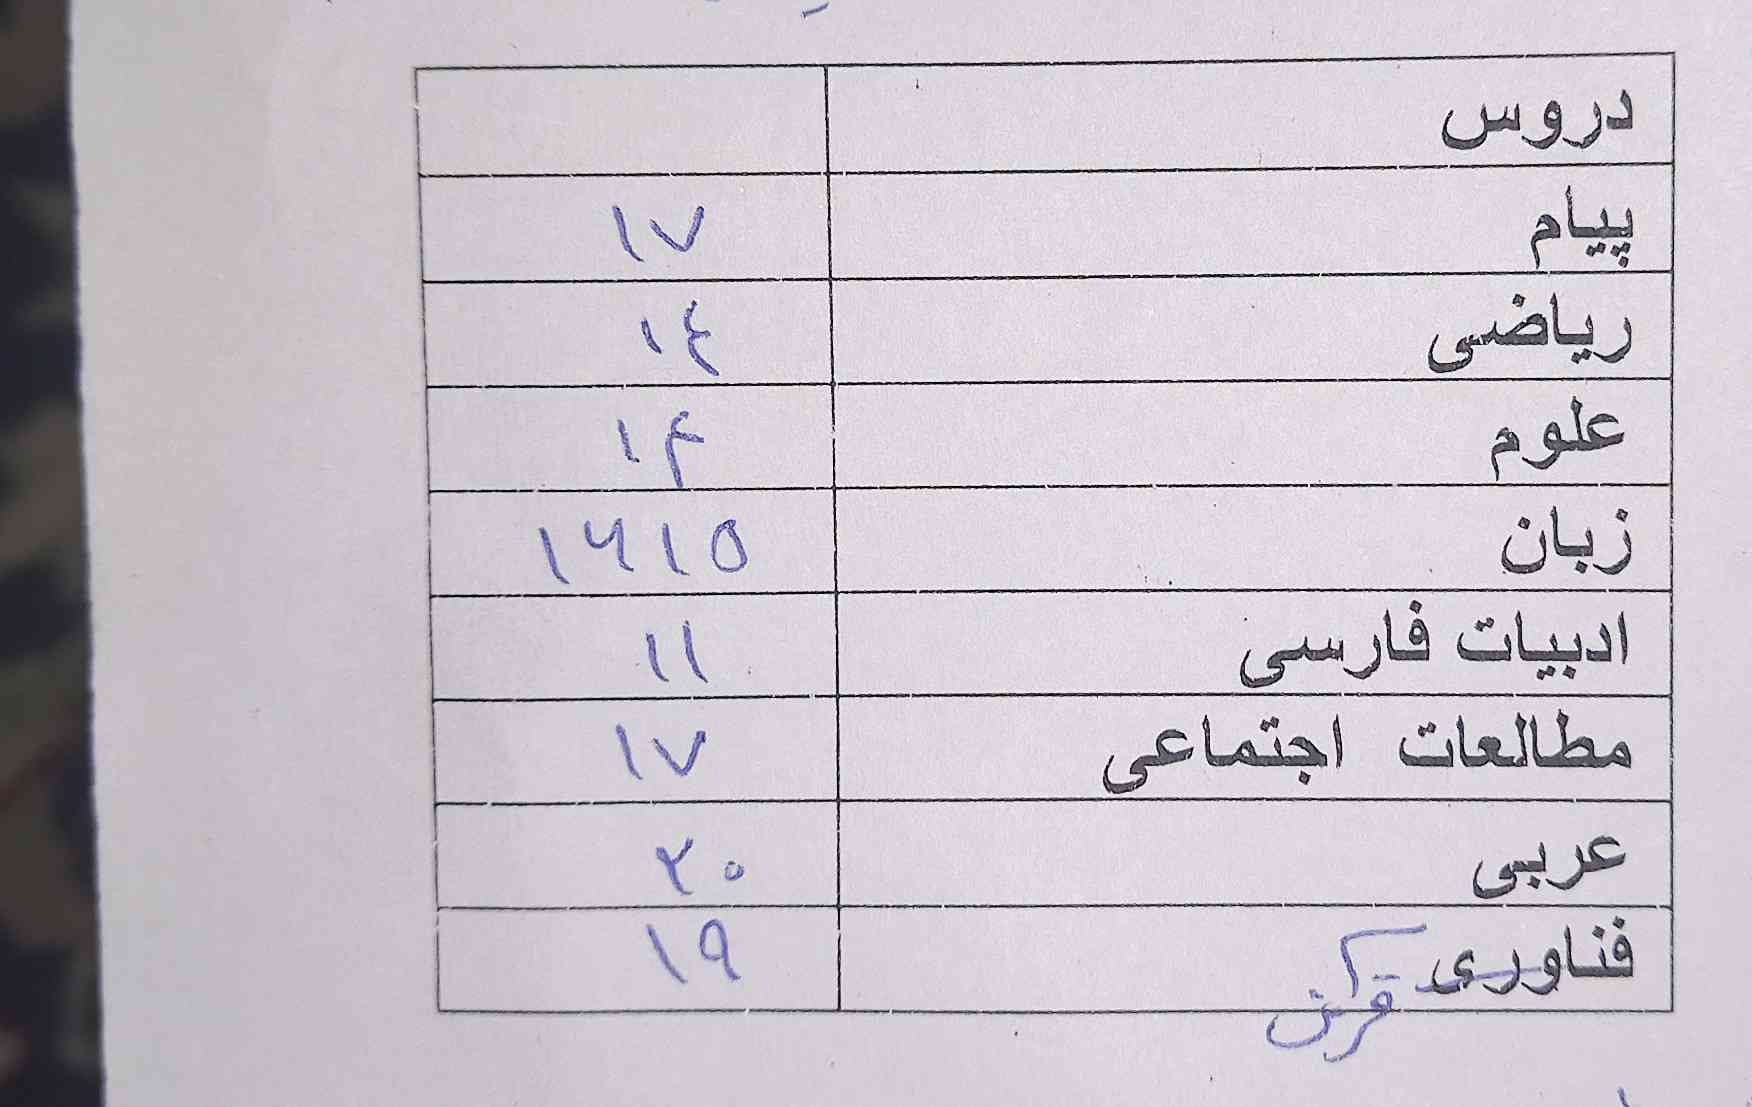 دروس
پیام ۱۷
ریاضی ۱٤
علوم ۱۴
زبان ۱۶/۵
ادبیات فارسی ۱۱
مطالعات اجتماعی ۱۷
عربی ۲۰
فناوری ۱۹